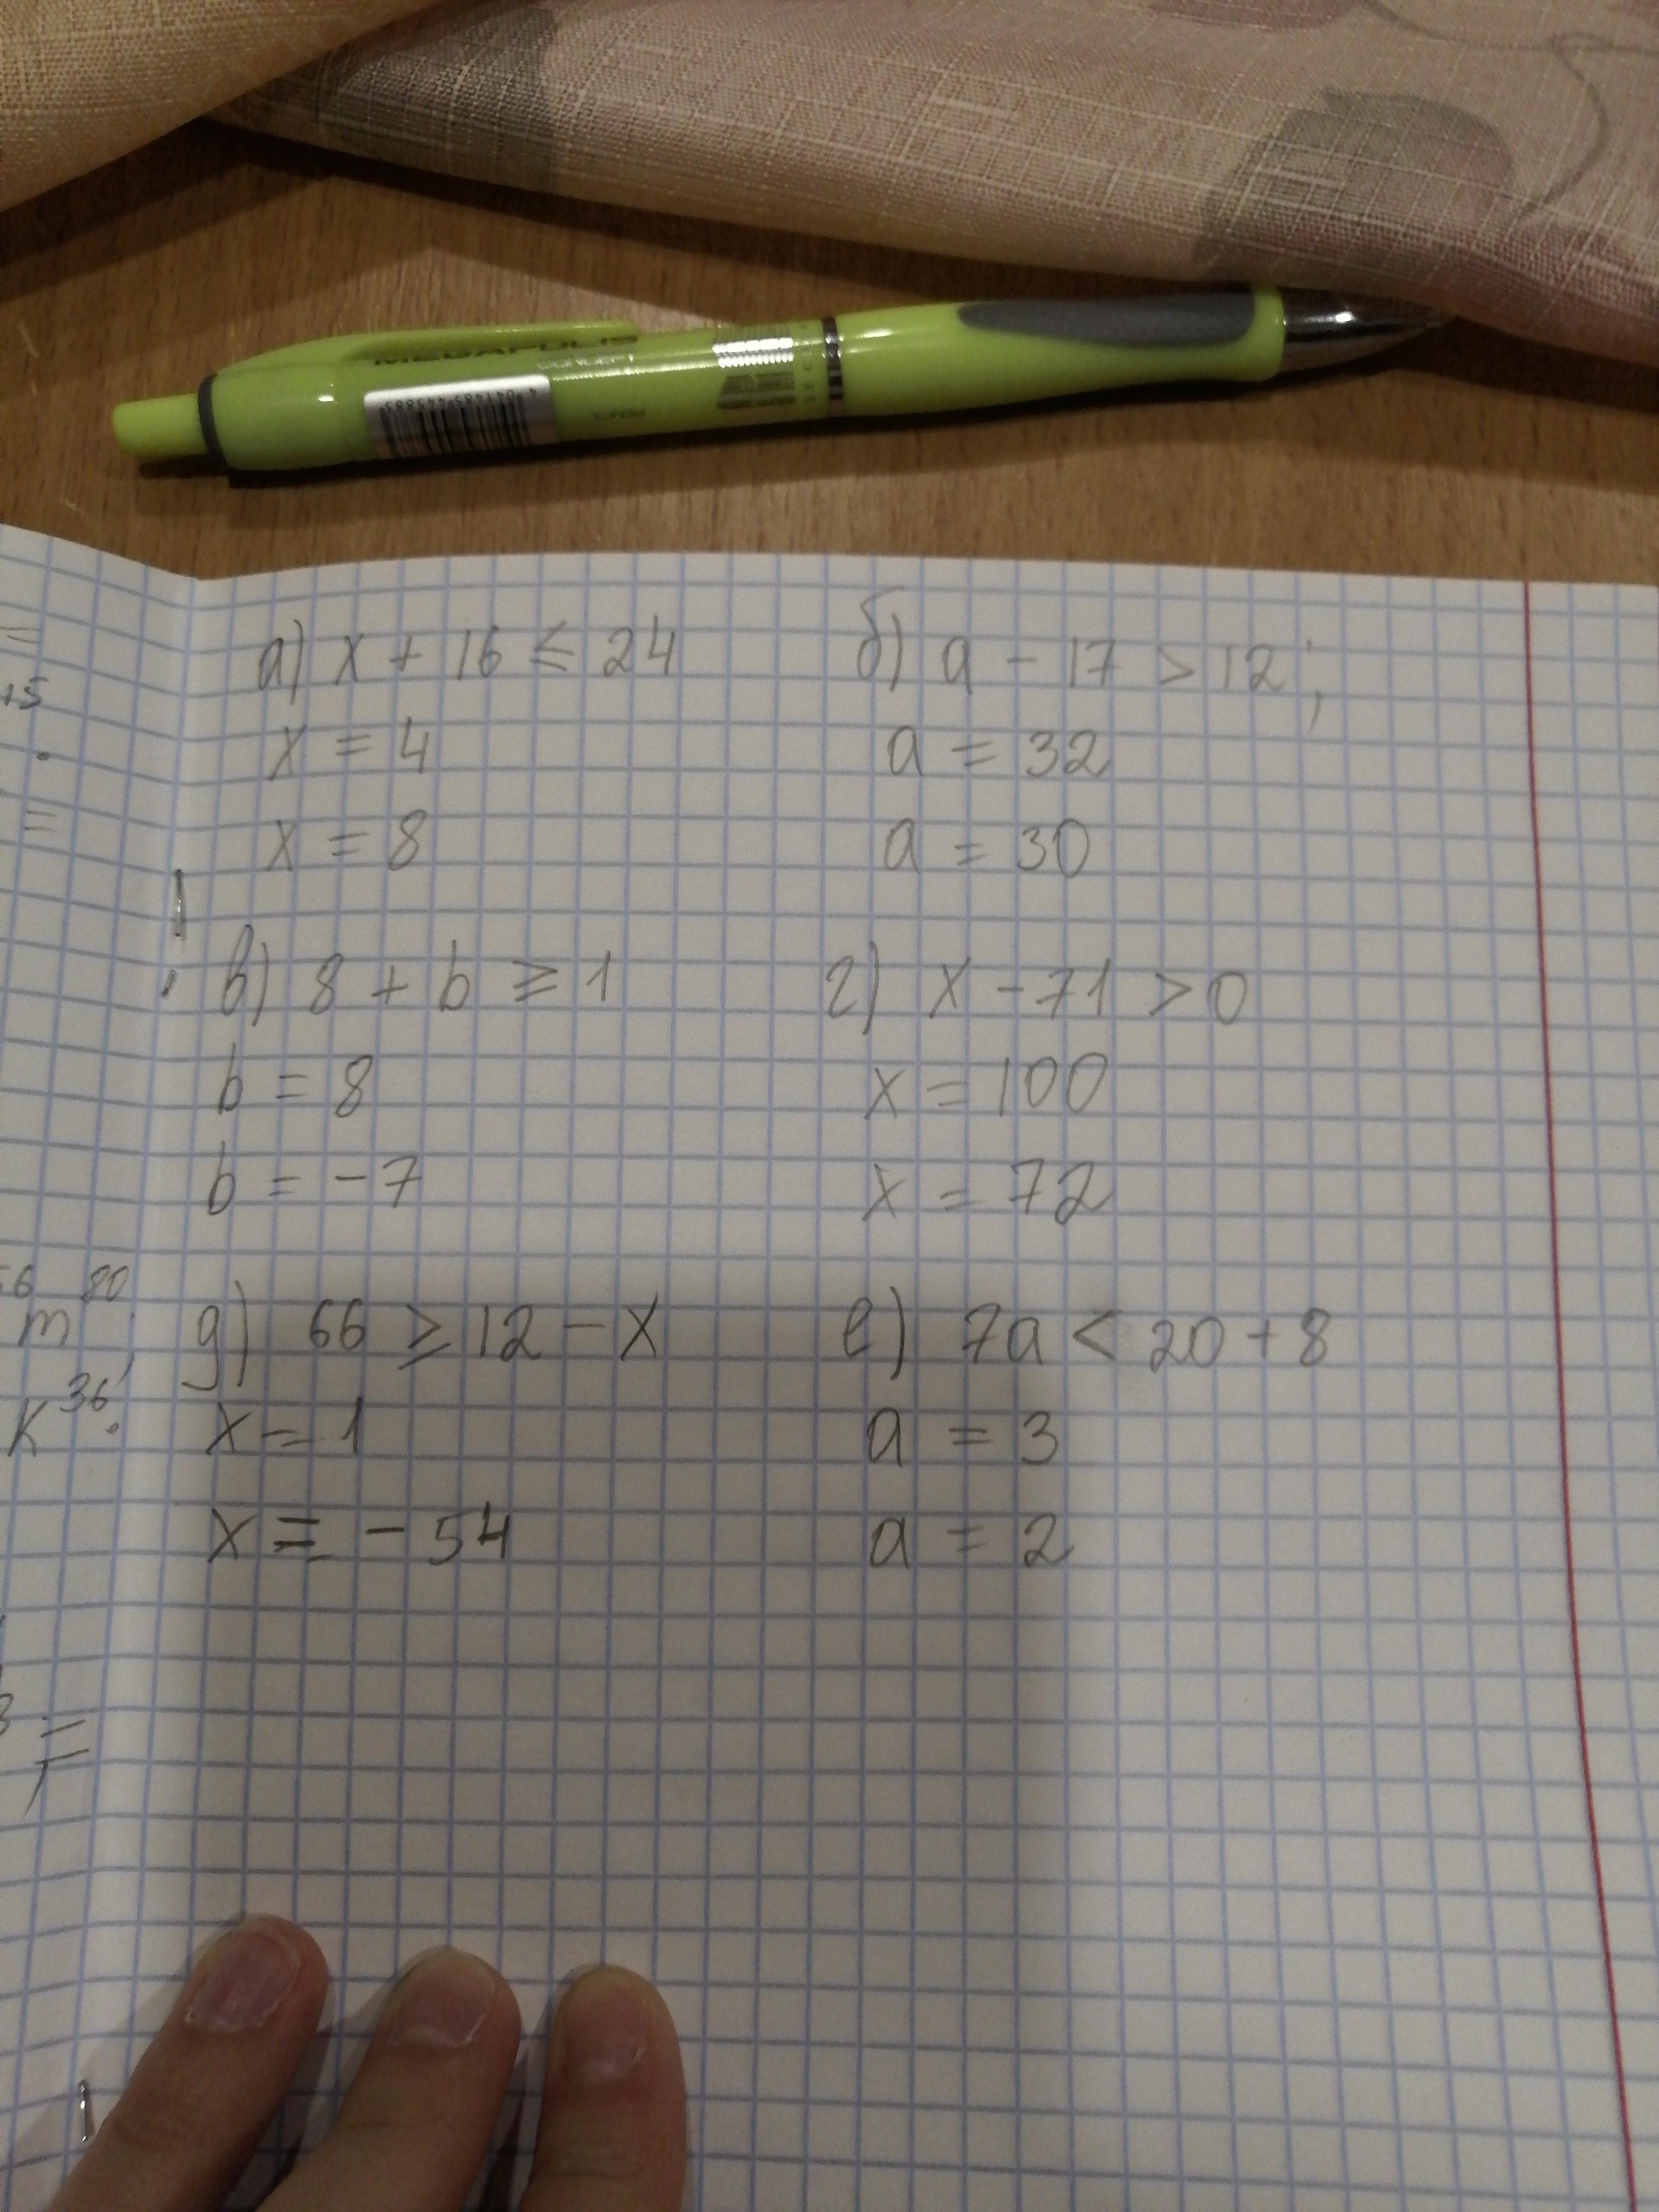 4041485455883
а) x + 16 ≤ 24
x = 4
x = 8
б) a - 17 > 12;
a = 32
a = 30
в) 8 + b ≥ 1
b = 8
b = -7
г) x - 71 > 0
x = 100
x = 72
m⁸⁰;
K³⁶.
д) 66 ≥ 12 - x
x = 1
x = -54
е) 7a < 20 + 8
a = 3
a = 2